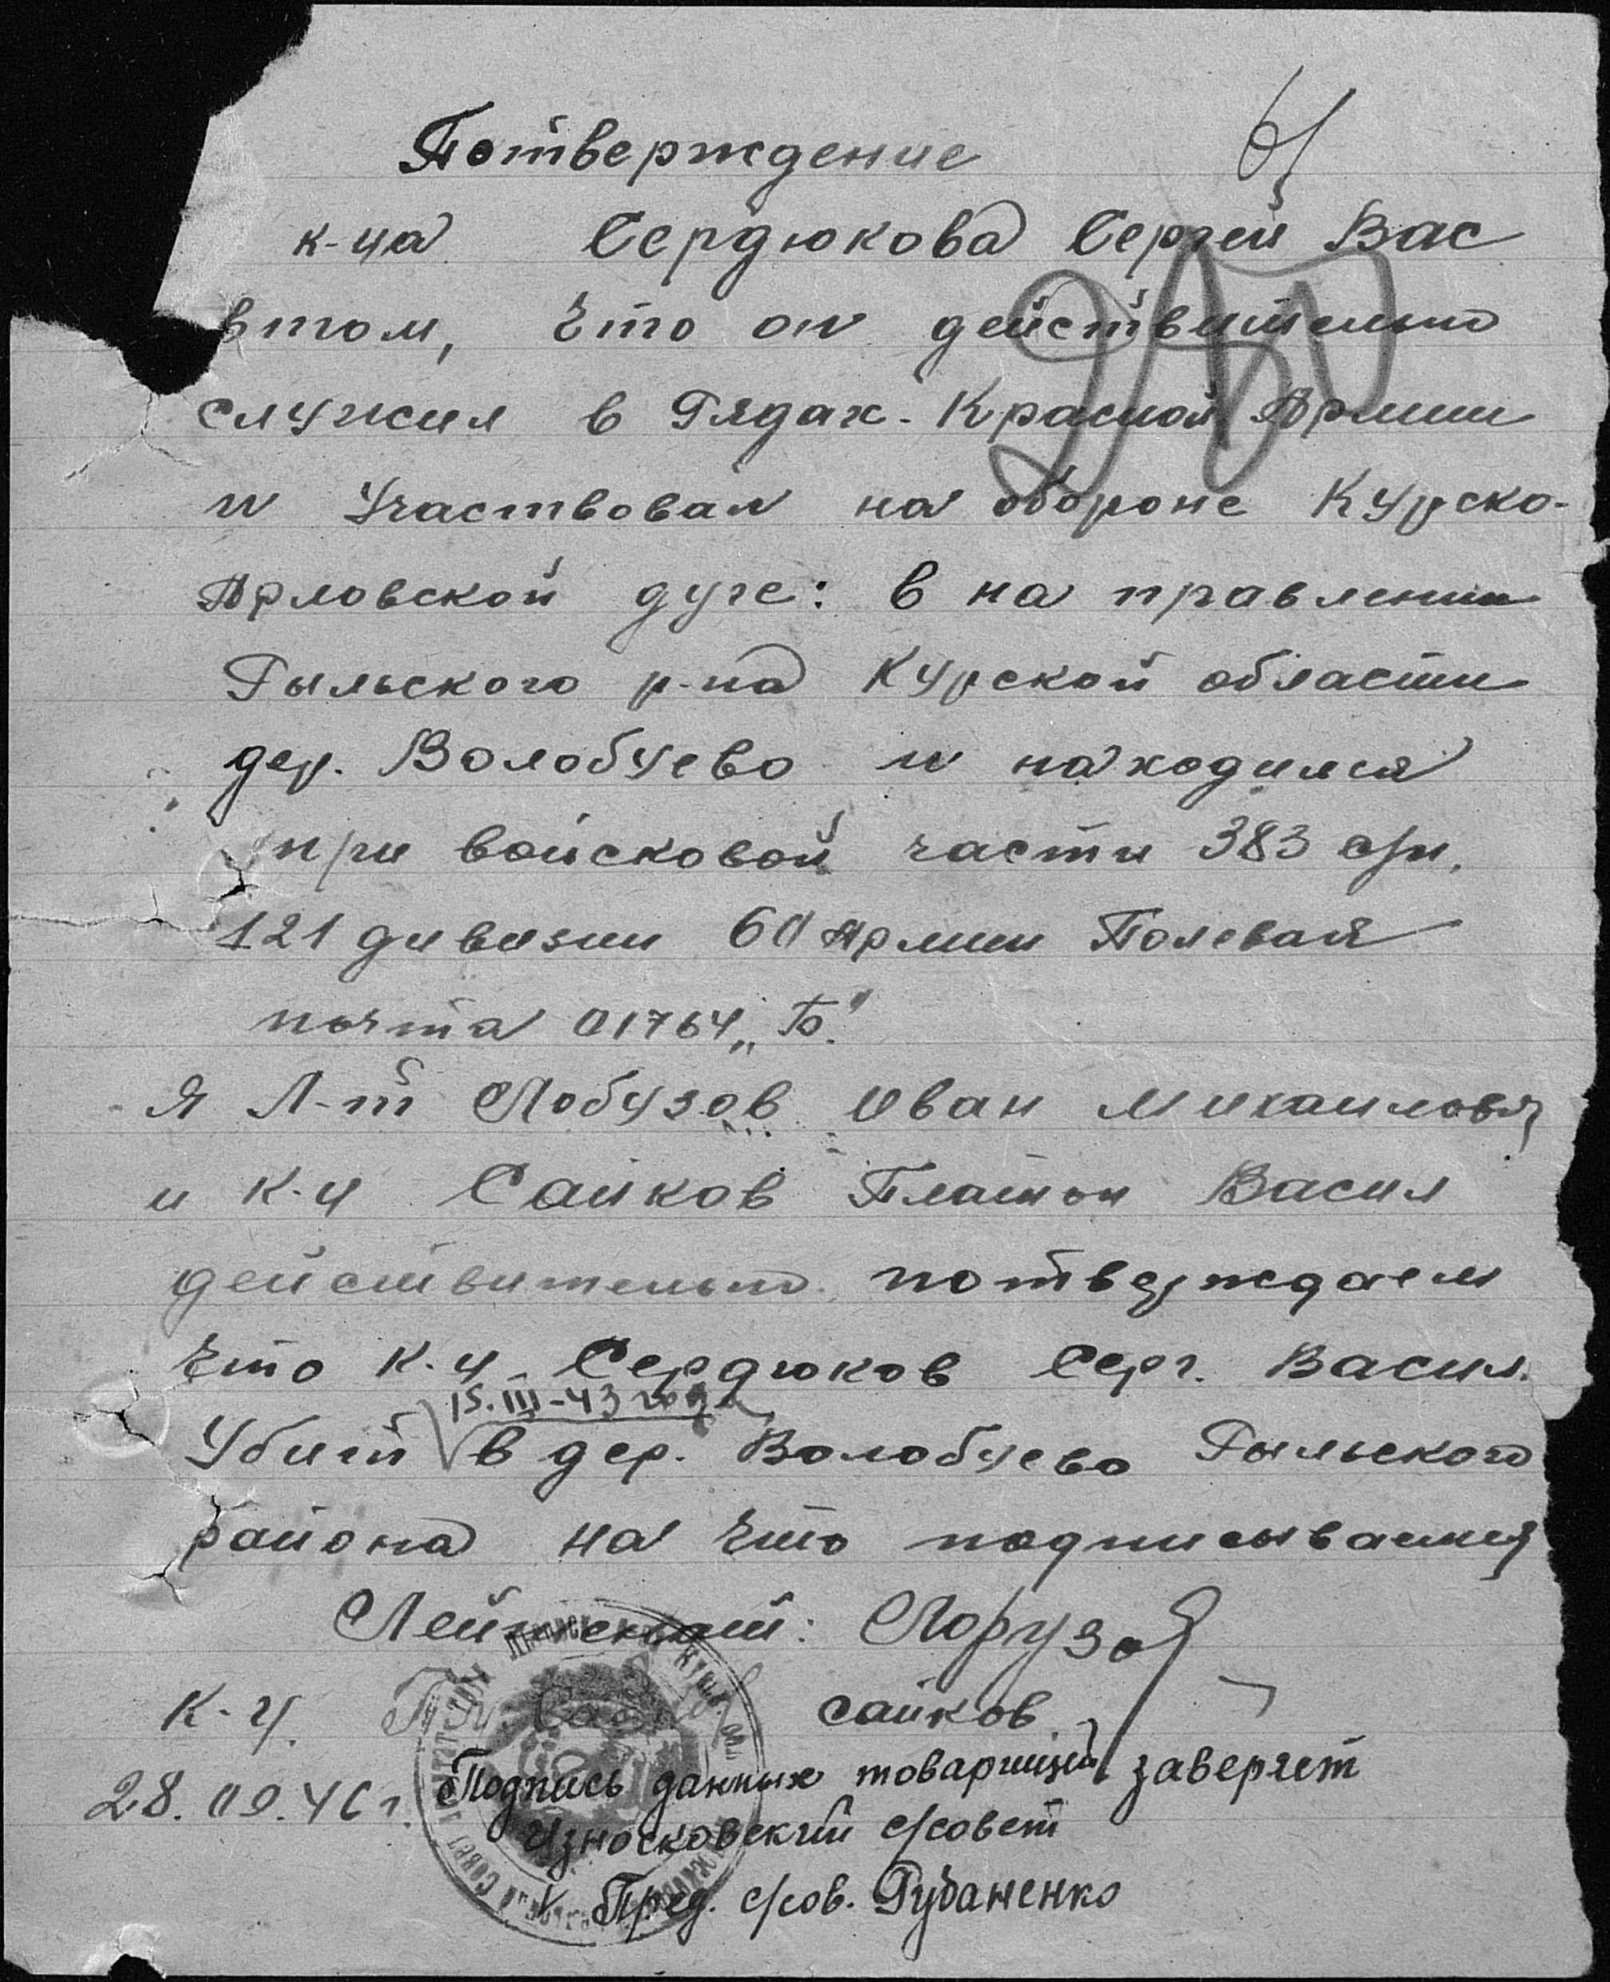 Потверждение
к-ца Сердюкова Сергей Вас
втом, что он действительно
служил в Рядах. Красной Армии
и Участвовал на обороне Курско-
Арловской дуге: в на правлении
Рыльского р-на Курской области
дер. Волобуево и находился
при войсковой части 383 с/п.
121 дивизии 60 Армии Полевая
почта 01764 „Б“
Я Л-т Лобузов Иван Михаилович
и К-ц Сайков Платон Васил
действительно потверждаем
что К-ц Сердюков Серг. Васил.
15.III-43 года
Убит в дер. Волобуево Рыльского
района на что подписываемся
Лейтенант:
К-ц. Сайков
28.09.46 г. Подпись данных товарищей заверяет
Износковский с/совет
Пред. с/сов. Губаненко